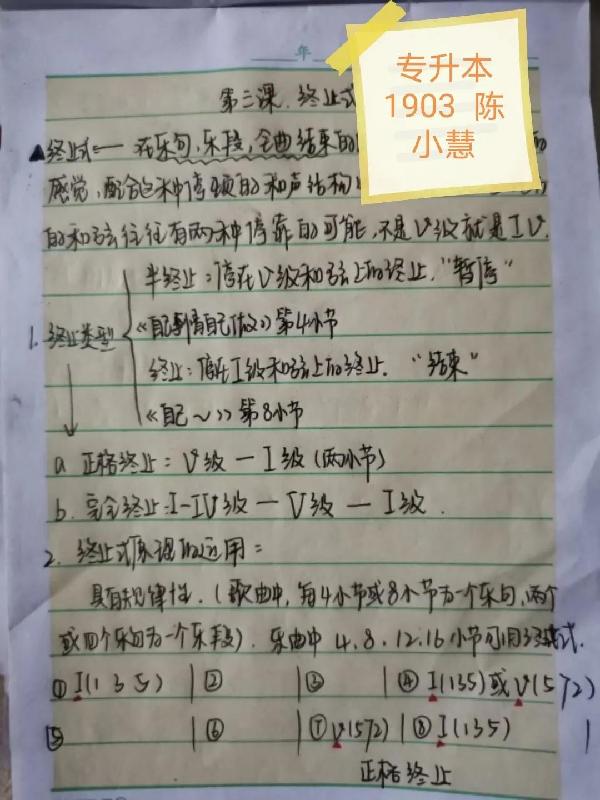 年
专升本
1903 陈
小慧
第三课. 终止式
▲终止式:一 在乐句,乐段,全曲结束的
感觉,配合这种停顿的和声结构
的和弦往往有两种停靠的可能,不是V级就是I级.
1. 终止类型
半终止:停在V级和弦上的终止. "暂停"
《自己事情自己做》第4小节
终止:停在I级和弦上的终止. "结束"
《自己~》第8小节
a 正格终止:V级一I级(两小节)
b. 完全终止:I-IV级一V级一I级.
2. 终止式原理的运用:
具有规律性.(歌曲中,每4小节或8小节为一个乐句,两个
或四个乐句为一个乐段). 乐曲中4.8.12.16小节可用终止式.
①I(1 3 5) | ② | ③ | ④ I(135)或V(572)
⑤ | ⑥ | ⑦V(572) | ⑧I(135) |
正格终止